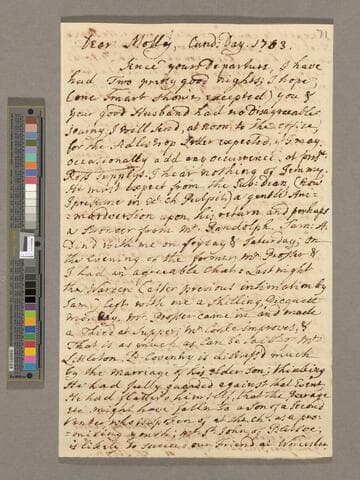 71
Dear Molly, Cand: Day. 1763.
Since your Departure, I have
had Two pretty good nights; I hope
(one smart shower excepted) you &
your good Husband had no Disagreeable
Journy. I will send, at noon to the office,
for the Adlestrop Letter expected, & I may
occasionally add any occurrence, at prest.
I hear nothing of Jemmy.
He must expect from the Sub-Dean (now
I presume in Ch: Ch: Pulpit) a gentle Ani-
madversion upon his return and perhaps
a from Mr. Randolph. Sam: &
Din'd with me on Fryday & Saturday; on
the Evening of the former, Mr. Prosser &
I had an agreeable Chat: & Last night
the Warden (after previous intimation by
Sam) left with me a Shilling, Picquett
money. Mr. Prosser came in and made
a Third at Supper; Mr. improves, &
That is as much as can be said of Mrs.
Littleton. Ld. Coventry is distress'd much
by the marriage of his elder Son; thinking
He had fully guarded against that Event
He had flatter'd himself, that the Peerage
etc. might have fall'n to a Son of a Second
Venter who is spoken of at Ch. Ch. as a pro-
misiing youth; Mr. St. John of Bletsoe,
is likely to succeed our Friend at Worcester